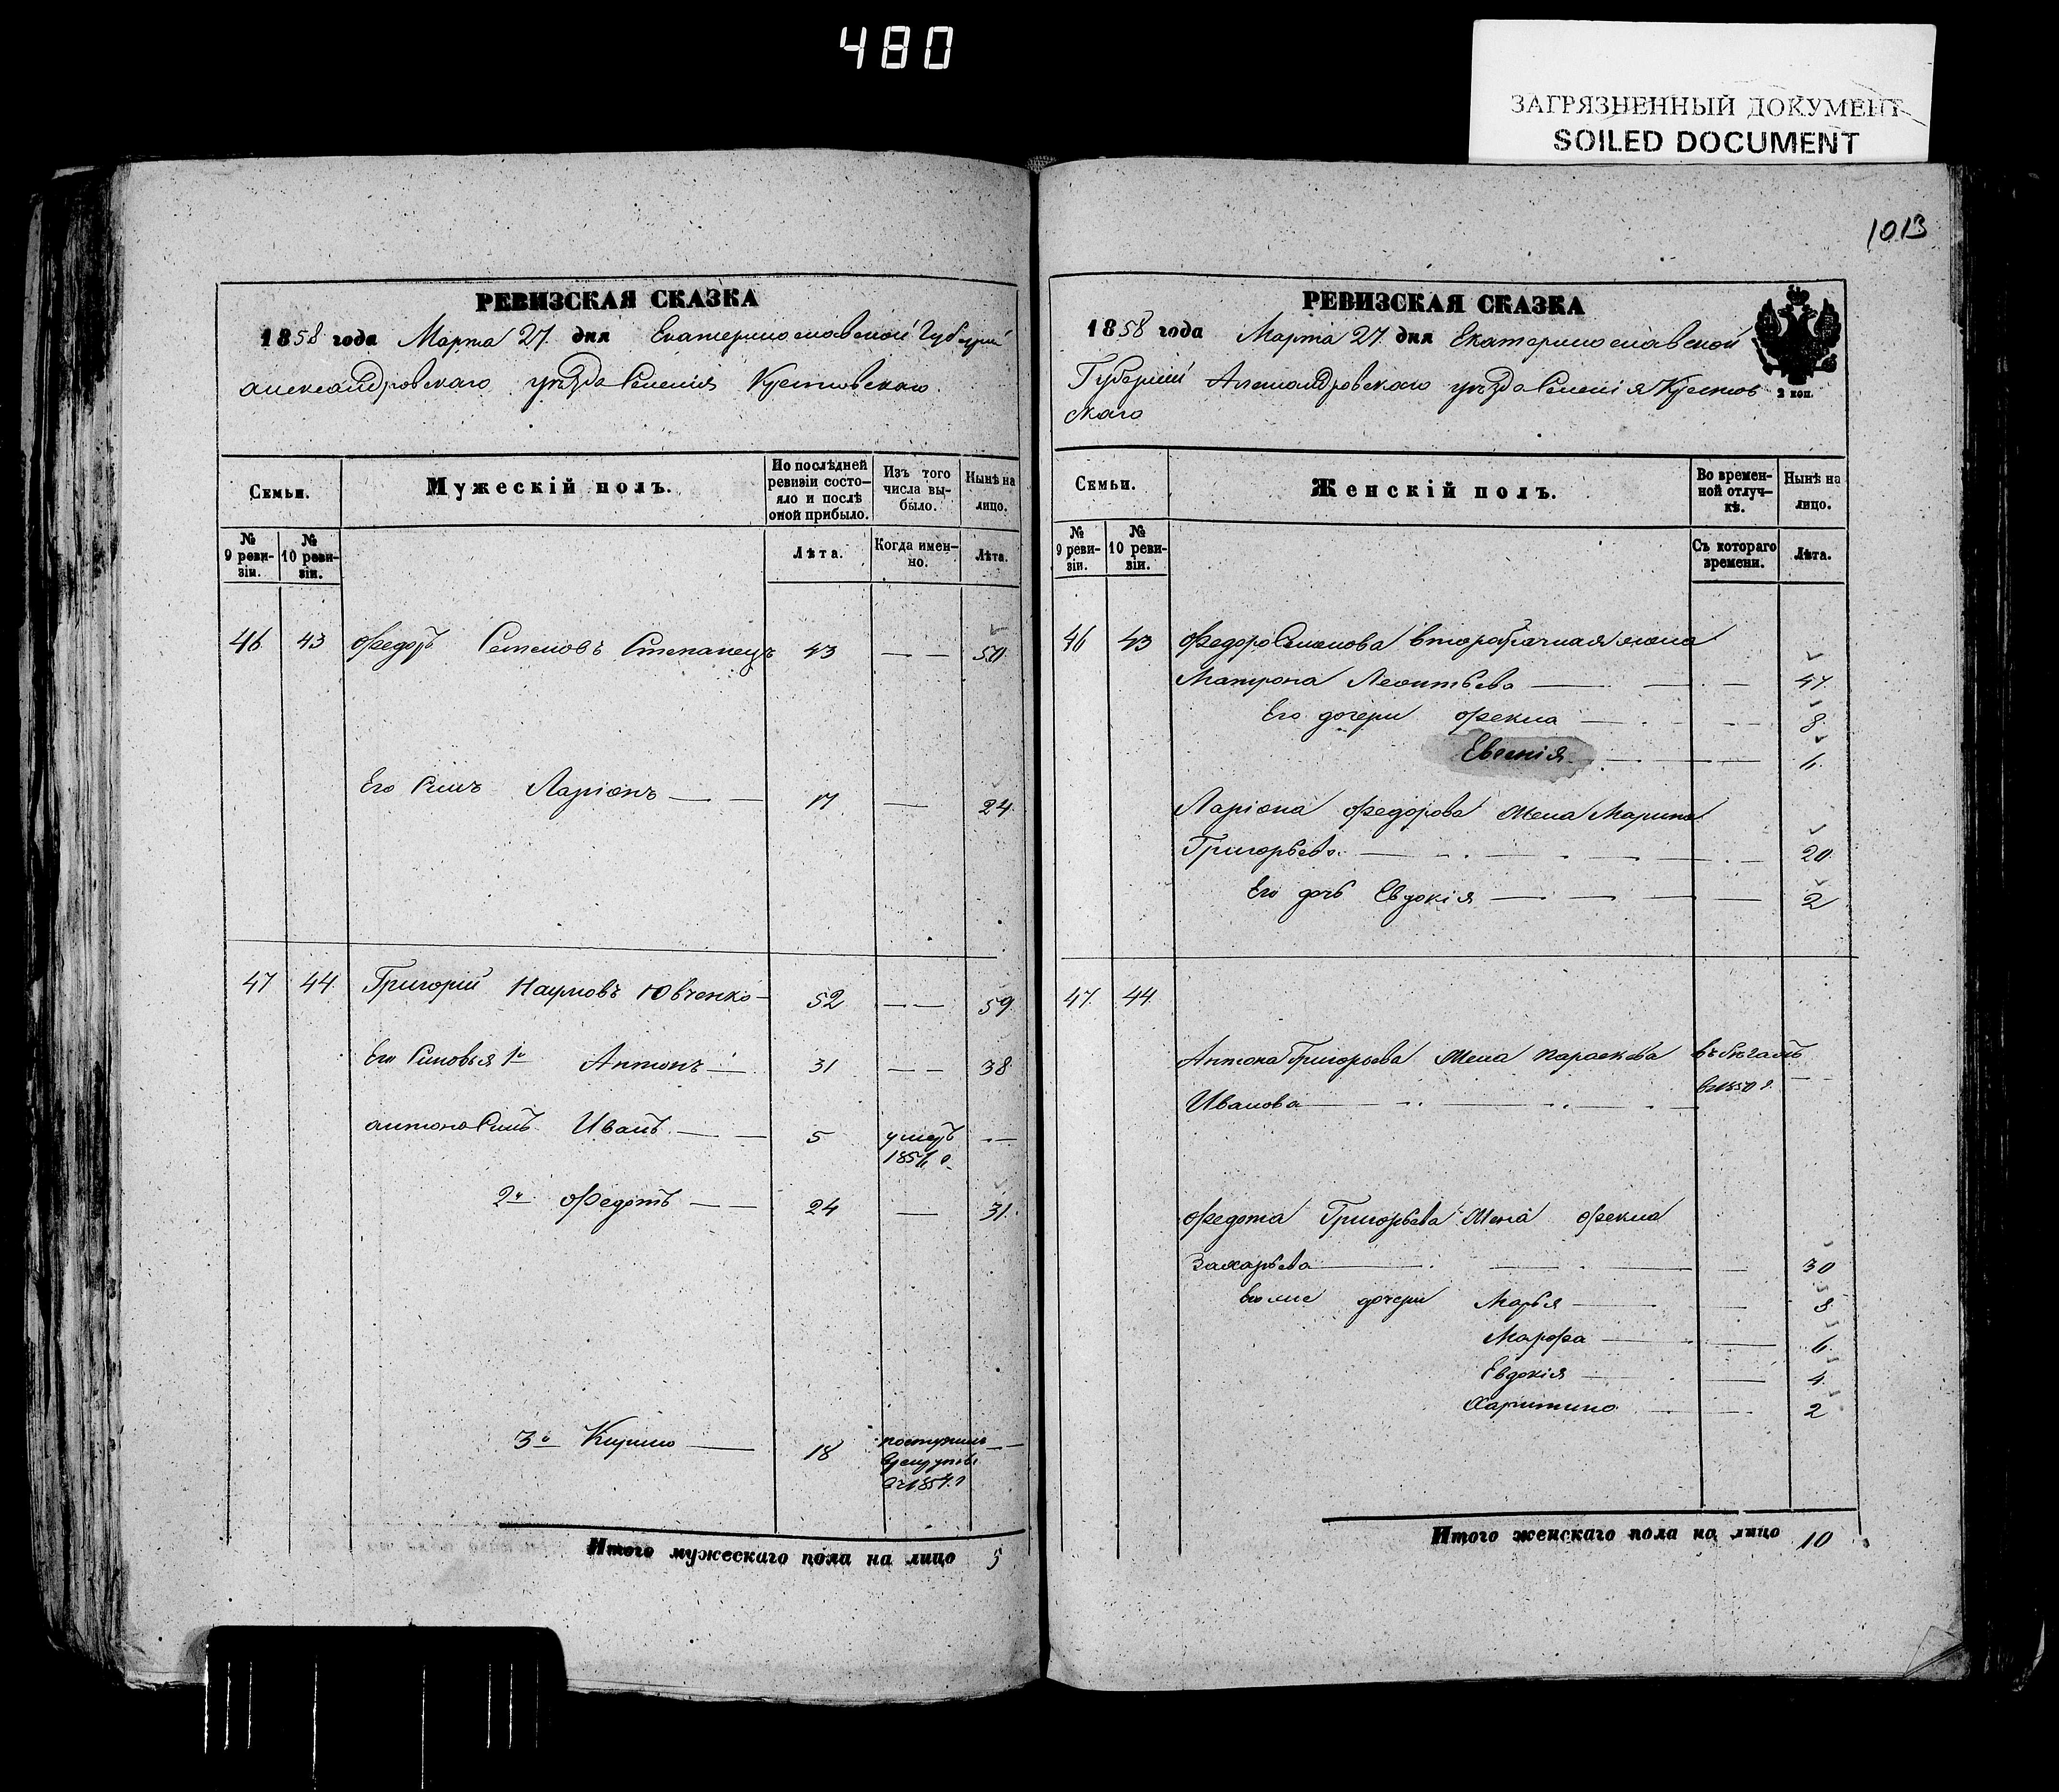 480
ЗАГРЯЗНЕННЫЙ ДОКУМЕНТ
SOILED DOCUMENT
РЕВИЗСКАЯ СКАЗКА
1858 года Марта 27 дня Екатеринославской Губернии
Александровскаго уѣзда Селенія
Семьи.
Мужескій полъ.
По послѣдней ревизіи состояло и послѣ оной прибыло.
Изъ того числа выбыло.
Нынѣ на лицо.
№ 9 ревизіи.
№ 10 ревизіи.
Лѣта.
Когда именно.
Лѣта.
46 43 Федоръ Семеновъ Степанецъ 43 — — 50
Его Сынъ Ларіонъ — — 17 — 24
47 44 Григорій Наумовъ Ювченко — 52 — — 59
Его Сыновья 1й Антонъ — 31 — — 38
Антона Сынъ Иванъ — — 5 умеръ — —
2й Федотъ — — 24 — 31
3й Кирило — 18 поступилъ — —
Итого мужескаго пола на лицо 5
1013
РЕВИЗСКАЯ СКАЗКА
1858 года Марта 27 дня Екатеринославской
Губерніи Александровскаго уѣзда Селенія
скаго
2 коп.
Семьи.
Женскій полъ.
Во временной отлучкѣ.
Нынѣ на лицо.
№ 9 ревизіи.
№ 10 ревизіи.
Съ котораго времени.
Лѣта.
46 43 Федора Семенова второбрачная жена
Матрона Леонтьева — — — 47
Его дочери Фекла — — 8
Евгенія — — 6
Ларіона Федорова жена Марина
Григорьева — — — 20
Его дочь Евдокія — — — 2
47 44
Антона Григорьева жена Параскева въ бѣгахъ
Иванова — — — въ 1850 г. — —
Федота Григорьева жена Фекла
Захарьева — — — 30
Его же дочери Марья — — 8
Марфа — — 6
Евдокія — — 4
Харитина — — 2
Итого женскаго пола на лицо 10